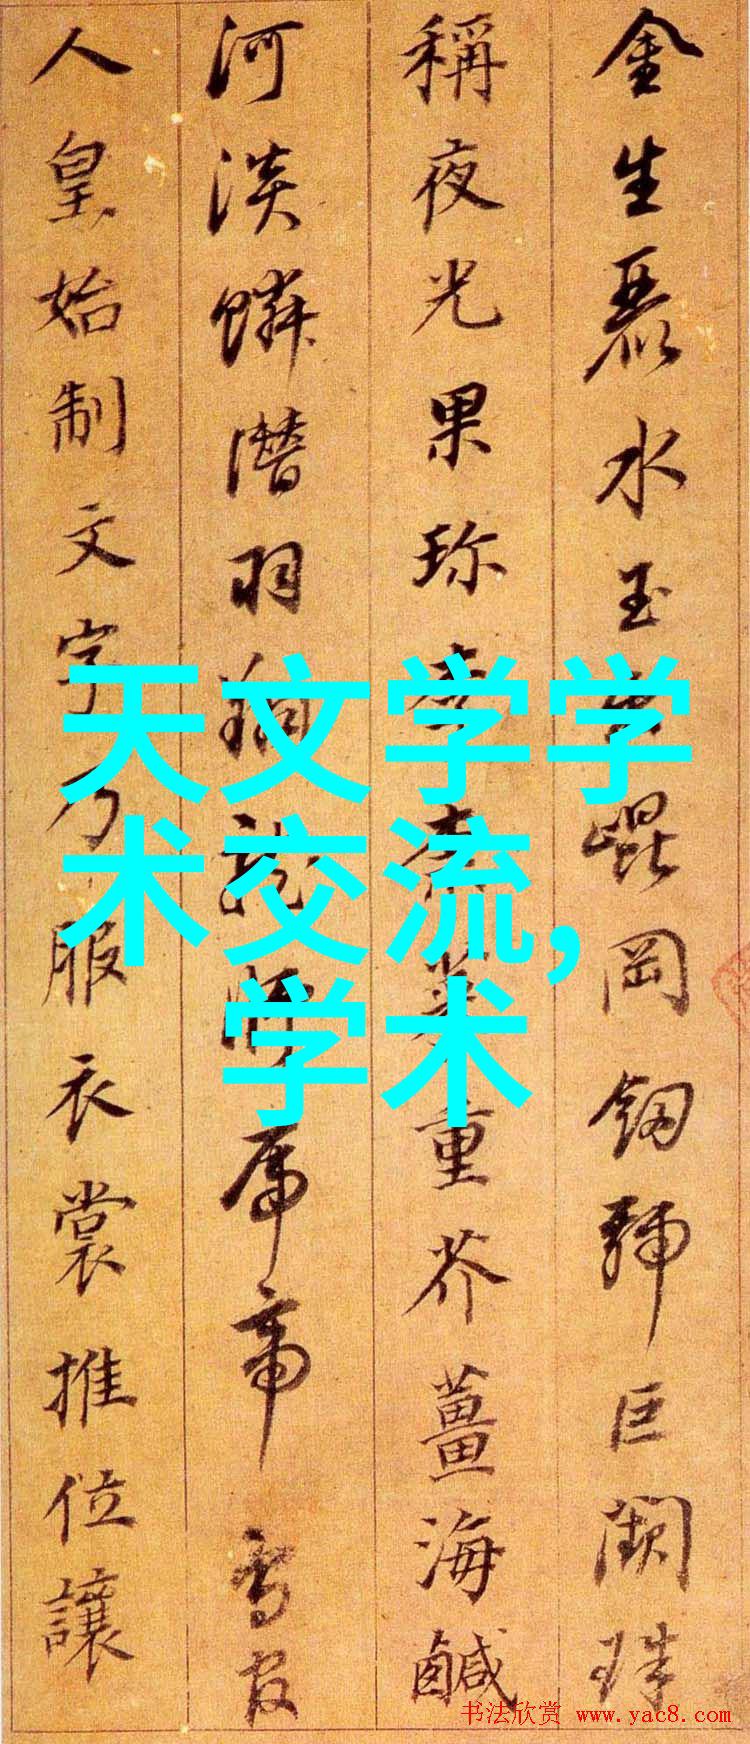 金生麗水玉出崐岡釰號巨闕珠
稱夜光果珎李柰菜重芥薑海鹹
河淡鱗潛羽翔龍師
帝鳥官
人皇始制文字乃服衣裳推位讓
天文学学
术交流,
学术
书法欣赏 www.yac8.com